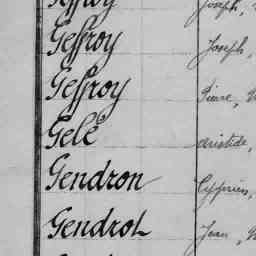 Geffroy Joseph,
Geffroy Joseph,
Geffroy Pierre,
Gelé Aristide,
Gendron Cyprien,
Gendrot Jean,